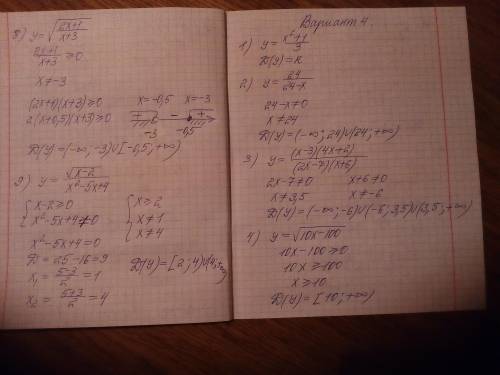 8) y = √((2x+1)/(x+3))
(2x+1)/(x+3) ≥ 0
x ≠ -3
(2x+1)(x+3) ≥ 0 x = -0,5 x = -3
2(x+0,5)(x+3) ≥ 0 + - +
-3 -0,5
D(y) = (-∞; -3) ∪ [-0,5; +∞)
9) y = √(x-2)/(x²-5x+4)
{ x-2 ≥ 0 { x ≥ 2
x²-5x+4 ≠ 0 x ≠ 1
x ≠ 4
x²-5x+4 = 0
D = 25-16 = 9 D(y) = [2; 4) ∪ (4; +∞)
x₁ = (5-3)/2 = 1
x₂ = (5+3)/2 = 4
Вариант 4.
1) y = (x²+1)/3
D(y) = R
2) y = 24/(24-x)
24-x ≠ 0
x ≠ 24
D(y) = (-∞; 24) ∪ (24; +∞)
3) y = (x-3)(4x+2)/((2x-7)(x+6))
2x-7 ≠ 0 x+6 ≠ 0
x ≠ 3,5 x ≠ -6
D(y) = (-∞; -6) ∪ (-6; 3,5) ∪ (3,5; +∞)
4) y = √(10x-100)
10x-100 ≥ 0
10x ≥ 100
x ≥ 10
D(y) = [10; +∞)